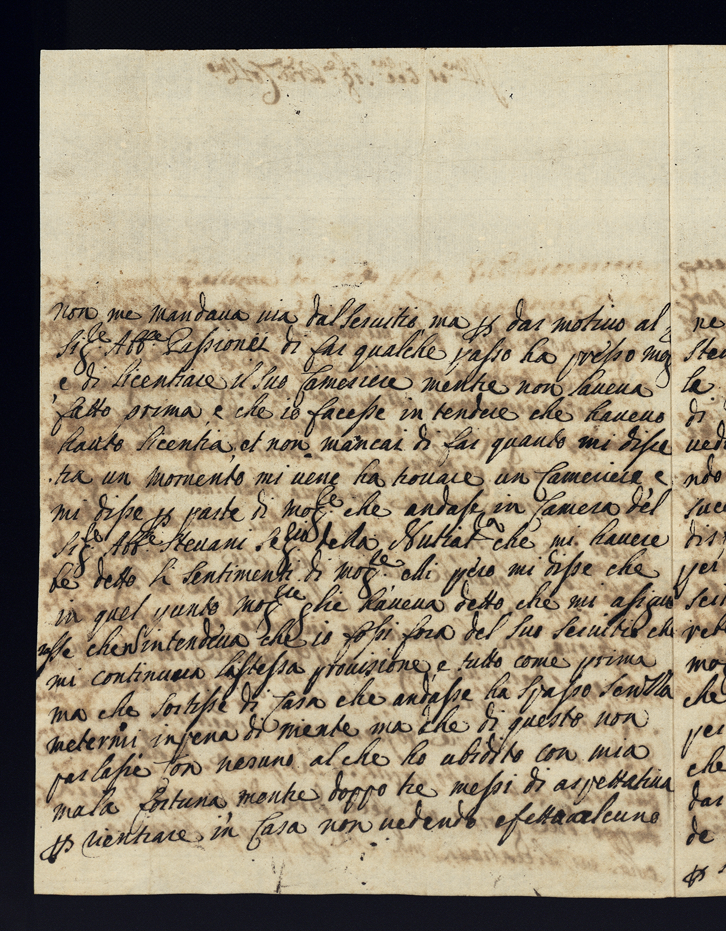 non me mandaua uia dal Seruitio, ma ꝑ dar motiuo al
Sig.re Abb.e Passionei di far qualche passo ha presso mog
e di licentiare il Suo Cameriere mentre non haueua
fatto prima, e che io facesse intendere che haueuo
hauto licentia, et non mancai di far quanto mi disse
tra un momento mi uene ha trouare un Cameriere e
mi disse ꝑ parte di mog.re che andasse in Camera del
Sig.re Abb.e Steuani Seg.rio della che mi hauere
be detto li Sentimenti di mog.re elli pero mi disse che
in quel punto mog.re glie haueua detto che mi
che S'intendeua che io fossi fora del Suo Seruitio ch
mi continuaua la stessa prouisione, e tutto come prima
ma che sortisse di Casa che andasse ha Spasso Senza
metermi in pena di niente ma che di questo non
parlasse con nesuno al che ho ubidito con mia
mala fortuna mentre doppo tre messi di aspettatiua
ꝑ rientrare in Casa non uedendo efetto alcuno
ne
la
di
ued
ndo
suc
per
che
per
che
dar
de
ꝑ